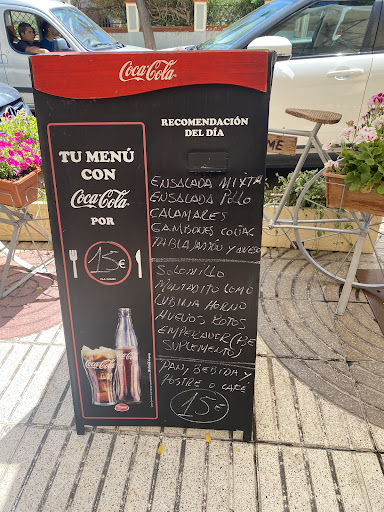 Coca-Cola
TU MENÚ
CON
Coca-Cola
POR
15€
RECOMENDACIÓN
DEL DÍA
ENSALADA MIXTA
ENSALADA POLLO
CALAMARES
GAMBONES COCTAC
TABLA JAMÓN Y QUESO
SOLOMILLO
MONTADITO LOMO
LUBINA HORNO
HUEVOS ROTOS
EMPERADOR (3€
SUPLEMENTO)
PAN, BEBIDA Y
POSTRE O CAFÉ
15€
Coca-Cola
Coca-Cola
ME